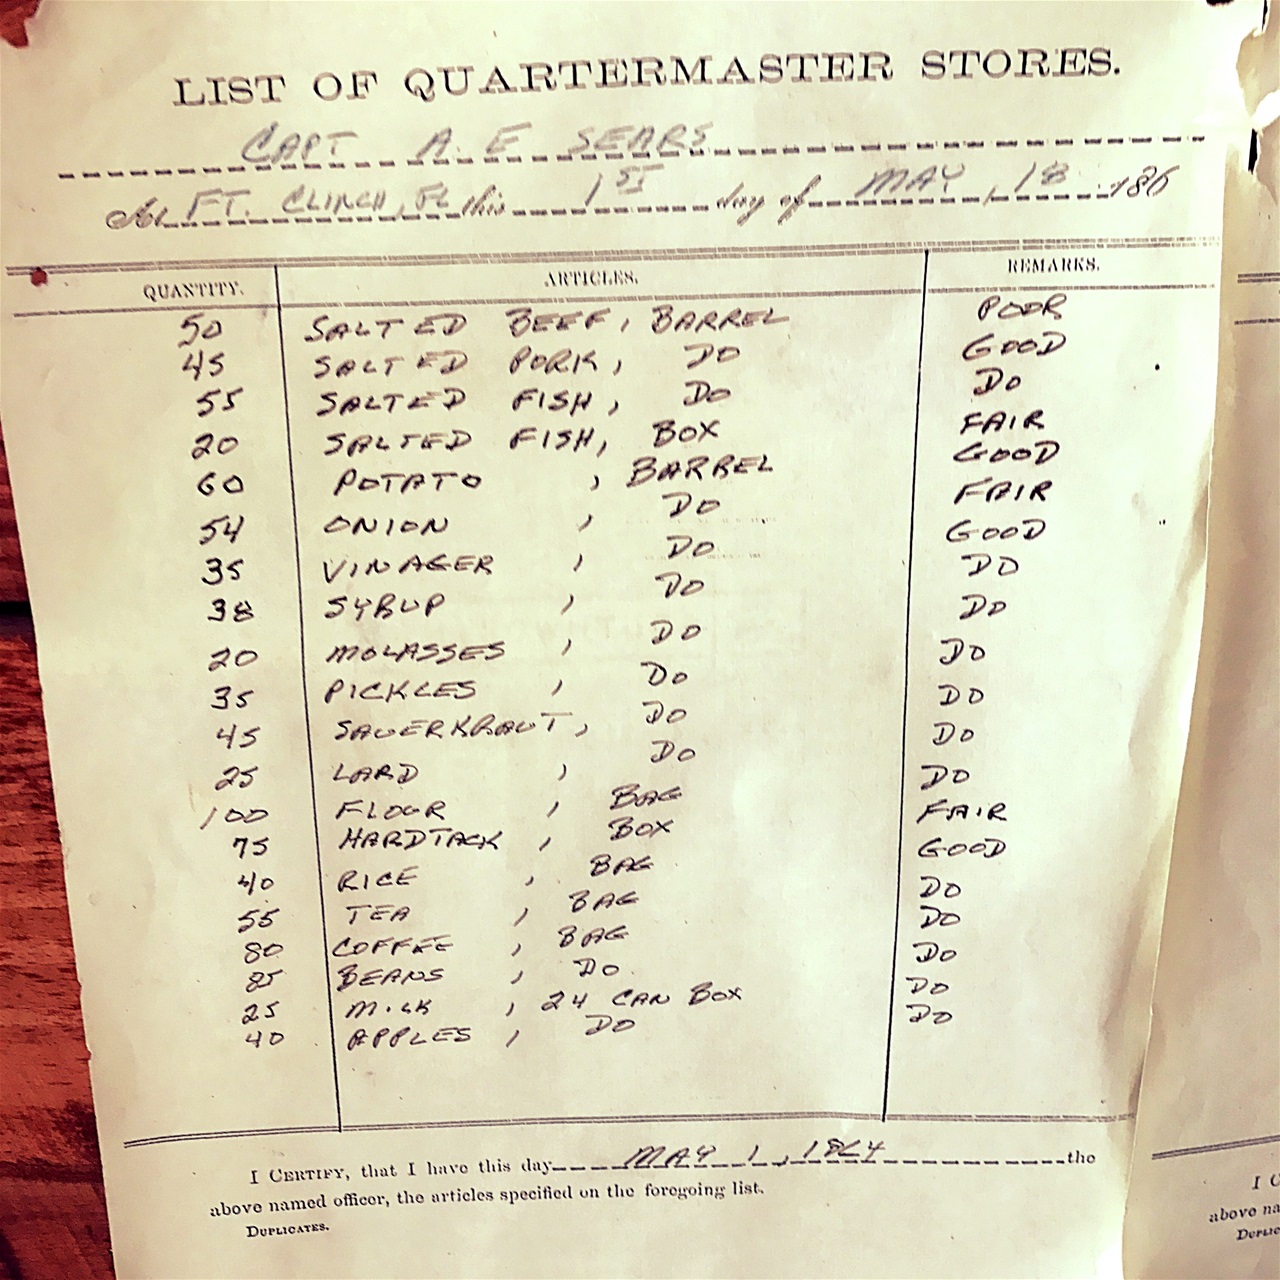 LIST OF QUARTERMASTER STORES.
CAPT A. E SEARS
At FT. CLINCH, FL this 1ST day of MAY, 18 186
QUANTITY. ARTICLES. REMARKS.
50 SALTED BEEF, BARREL POOR
45 SALTED PORK, DO GOOD
55 SALTED FISH, DO DO
20 SALTED FISH, BOX FAIR
60 POTATO , BARREL GOOD
54 ONION , DO FAIR
35 VINAGER , DO GOOD
38 SYRUP , DO DO
20 MOLASSES , DO DO
35 PICKLES , DO DO
45 SAUERKRAUT, DO DO
25 LARD , DO DO
100 FLOUR , BAG DO
75 HARDTACK , BOX FAIR
40 RICE , BAG GOOD
55 TEA , BAG DO
80 COFFEE , BAG DO
85 BEANS , DO DO
25 MILK , 24 CAN BOX DO
40 APPLES , DO DO
I CERTIFY, that I have this day MAY 1, 1864 the
above named officer, the articles specified on the foregoing list.
DUPLICATES.
I C
above na
DUPLIC